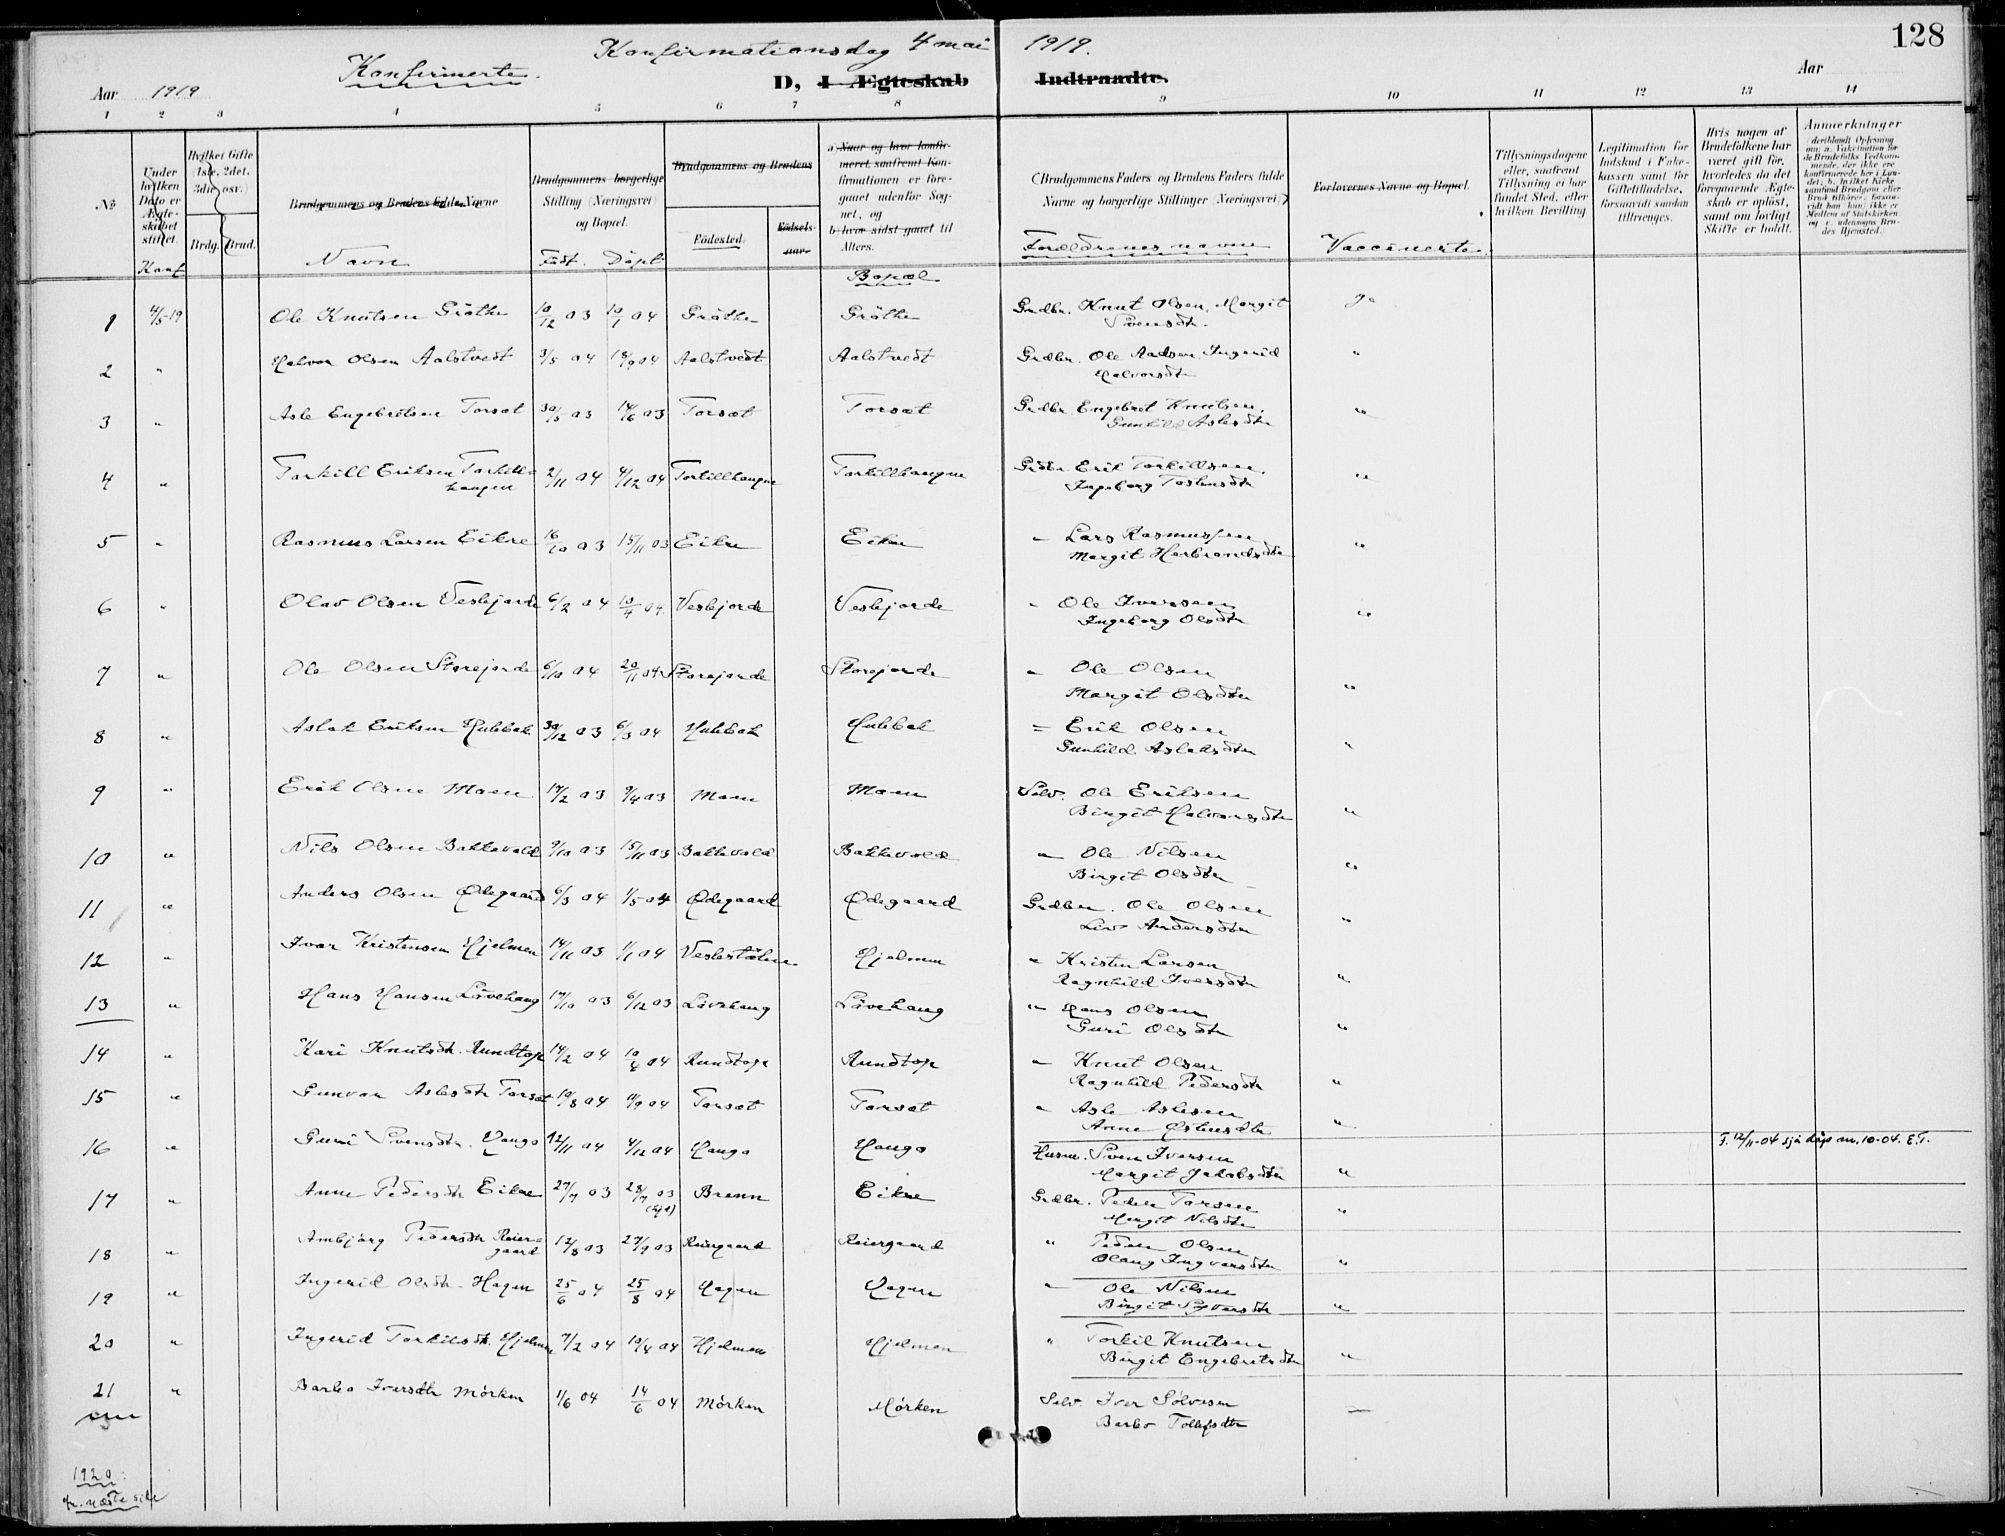 128
Konfirmationsdag 4 mai 1919.
Konfirmerte.
D, I Ægteskab Indtraadte.
Aar 1919
Aar
1 2 3 4 5 6 7 8 9 10 11 12 13 14
No
Under hvilken Dato er Ægteskabet stiftet.
Konf
Hvilket Gifte (1ste, 2det, 3die osv.)
Brdg. Brud.
Brudgommens og Brudens fulde Navne
Navn
Brudgommens borgerlige Stilling (Næringsvei) og Bopæl.
Født. Døpt
Brudgommens og Brudens
Födested.
Födsels-aar.
a Naar og hvor konfirmeret, saafremt Konfirmationen er foregaaet udenfor Sognet, og
b hvor sidst gaaet til Alters.
Bopæl
(Brudgommens Faders og Brudens Faders fulde Navne og borgerlige Stillinger (Næringsvei)
Foreldrenes navne
Forlovernes Navne og Bopæl.
Vaccinerte.
Tillysningsdagene eller, saafremt Tillysning ei har fundet Sted, efter hvilken Bevilling
Legitimation for Indskud i Enkekassen samt for Giftetilladelse, forsaavidt saadan tiltrænges.
Hvis nogen af Brudefolkene har været gift før, hvorledes da det foregaaende Ægteskab er opløst, samt om lovligt Skifte er holdt.
Anmerkninger
1 4/5-19 Ole Knutsen Gröthe 10/12 03 10/1 04 Gröthe Gröthe Grdbr. Knut Olsen, Margit Svensdtr. Ja
2 " Halvor Olsen Aalstvedt 3/5 04 18/9 04 Aalstvedt Aalstvedt Grdbr. Ole Aadsen Ingerid Halvorsdtr "
3 " Asle Engebretsen Torsæt 30/5 03 14/6 03 Torsæt Torsæt Grdbr. Engebret Knutsen, Gunhild Aslesdtr "
4 " Torkill Eriksen Torkillhaugen 2/11 04 4/12 04 Torkillhaugen Torkillhaugen Grdbr. Erik Torkillsen, Ingeborg "
5 " Rasmus Larsen Eikre 16/10 03 15/11 03 Eikre Eikre " Lars Rasmussen Margit Herbrandsdtr "
6 " Olav Olsen Veslejorde 6/2 04 10/4 04 Veslejorde Veslejorde " Ole Iversen Ingeborg Olsdtr "
7 " Ole Olsen Storejorde 6/10 04 20/11 04 Storejorde Storejorde " Ole Olsen Margit Olsdtr "
8 " Aslak Eriksen Hulbak 30/12 03 6/3 04 Hulbak Hulbak " Erik Olsen Gunhild Aslaksdtr "
9 " Erik Olsen Moen 17/2 03 9/4 03 Moen Moen Selv. Ole Eriksen Birgit Halvorsdtr "
10 " Nils Olsen Bakkevold 9/10 03 15/11 03 Bakkevold Bakkevold " Ole Nilsen Birgit Olsdtr "
11 " Anders Olsen Ødegaard 6/3 04 1/5 04 Ødegaard Ødegaard Grdbr. Ole Olsen Liv Andersdtr "
12 " Ivar Kristensen Hjelmen 14/11 03 1/1 04 Veslestölen Hjelmen " Kristen Larsen Ragnhild Iversdtr "
13 " Hans Hansen Lövehaug 17/10 03 6/12 03 Lövehaug Lövehaug " Hans Olsen Guri Olsdtr "
14 " Kari Knutsdtr. Rundtop 14/2 04 10/4 04 Rundtop Rundtop " Knut Olsen Ragnhild Pedersdtr "
15 " Gunvor Aslesdtr Torsæt 10/8 04 11/9 04 Torsæt Torsæt " Asle Aslesen Anne "
16 " Guri Svensdtr. Hauge 12/11 04 4/12 04 Hauge Hauge Husm. Sven Iversen Margit Jakobsdtr " F. 12/11-04 sjå dåp nr. 10-04. E.T.
17 " Anne Pedersdtr Eikre 27/7 03 28/7 03 (hjd) Brenn Eikre Grdbr. Peder Torsen Margit Nilsdtr "
18 " Ambjörg Pedersdtr Reiergaard 12/8 03 27/9 03 Reiergaard Reiergaard " Peder Olsen Olaug Ingvarsdtr "
19 " Ingerid Olsdtr. Hagen 25/6 04 25/8 04 Hagen Hagen " Ole Nilsen Birgit Syversdtr "
20 " Ingerid Torkilsdtr. Hjelmen 7/2 04 10/4 04 Hjelmen Hjelmen " Torkil Knutsen Birgit Engebretsdtr "
21 " Barbo Iversdtr Mörken 1/6 04 14/6 04 Mörken Mörken Selv. Iver Sölvesen Barbo Tollefsdtr —
1920:
næste side